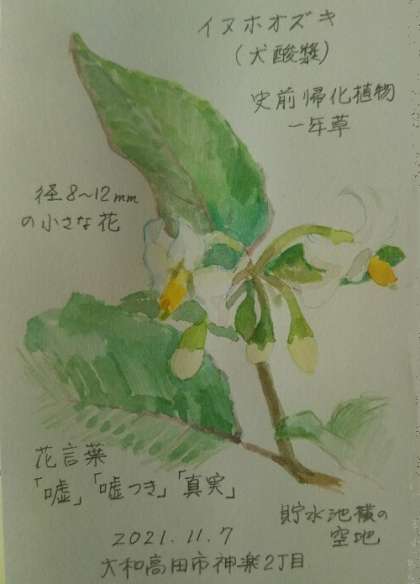 イヌホオズキ
(犬酸漿)
史前帰化植物
一年草
径8~12mm
の小さな花
花言葉
「嘘」「嘘つき」「真実」
貯水池横の
空地
2021.11.7
大和高田市神楽2丁目